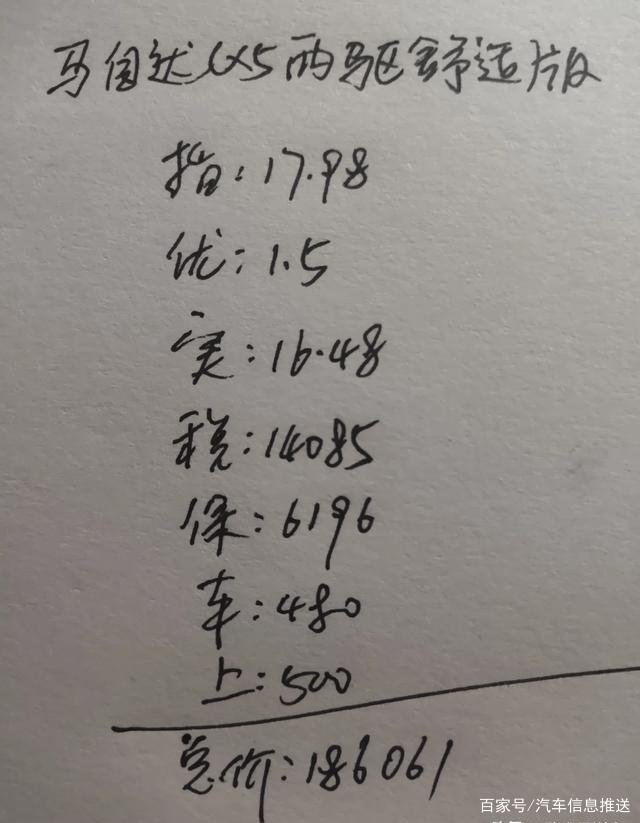 马自达CX5两驱舒适版
指:17.98
优:1.5
实:16.48
税:14085
保:6196
车:480
上:500
总价:186061
百家号/汽车信息推送